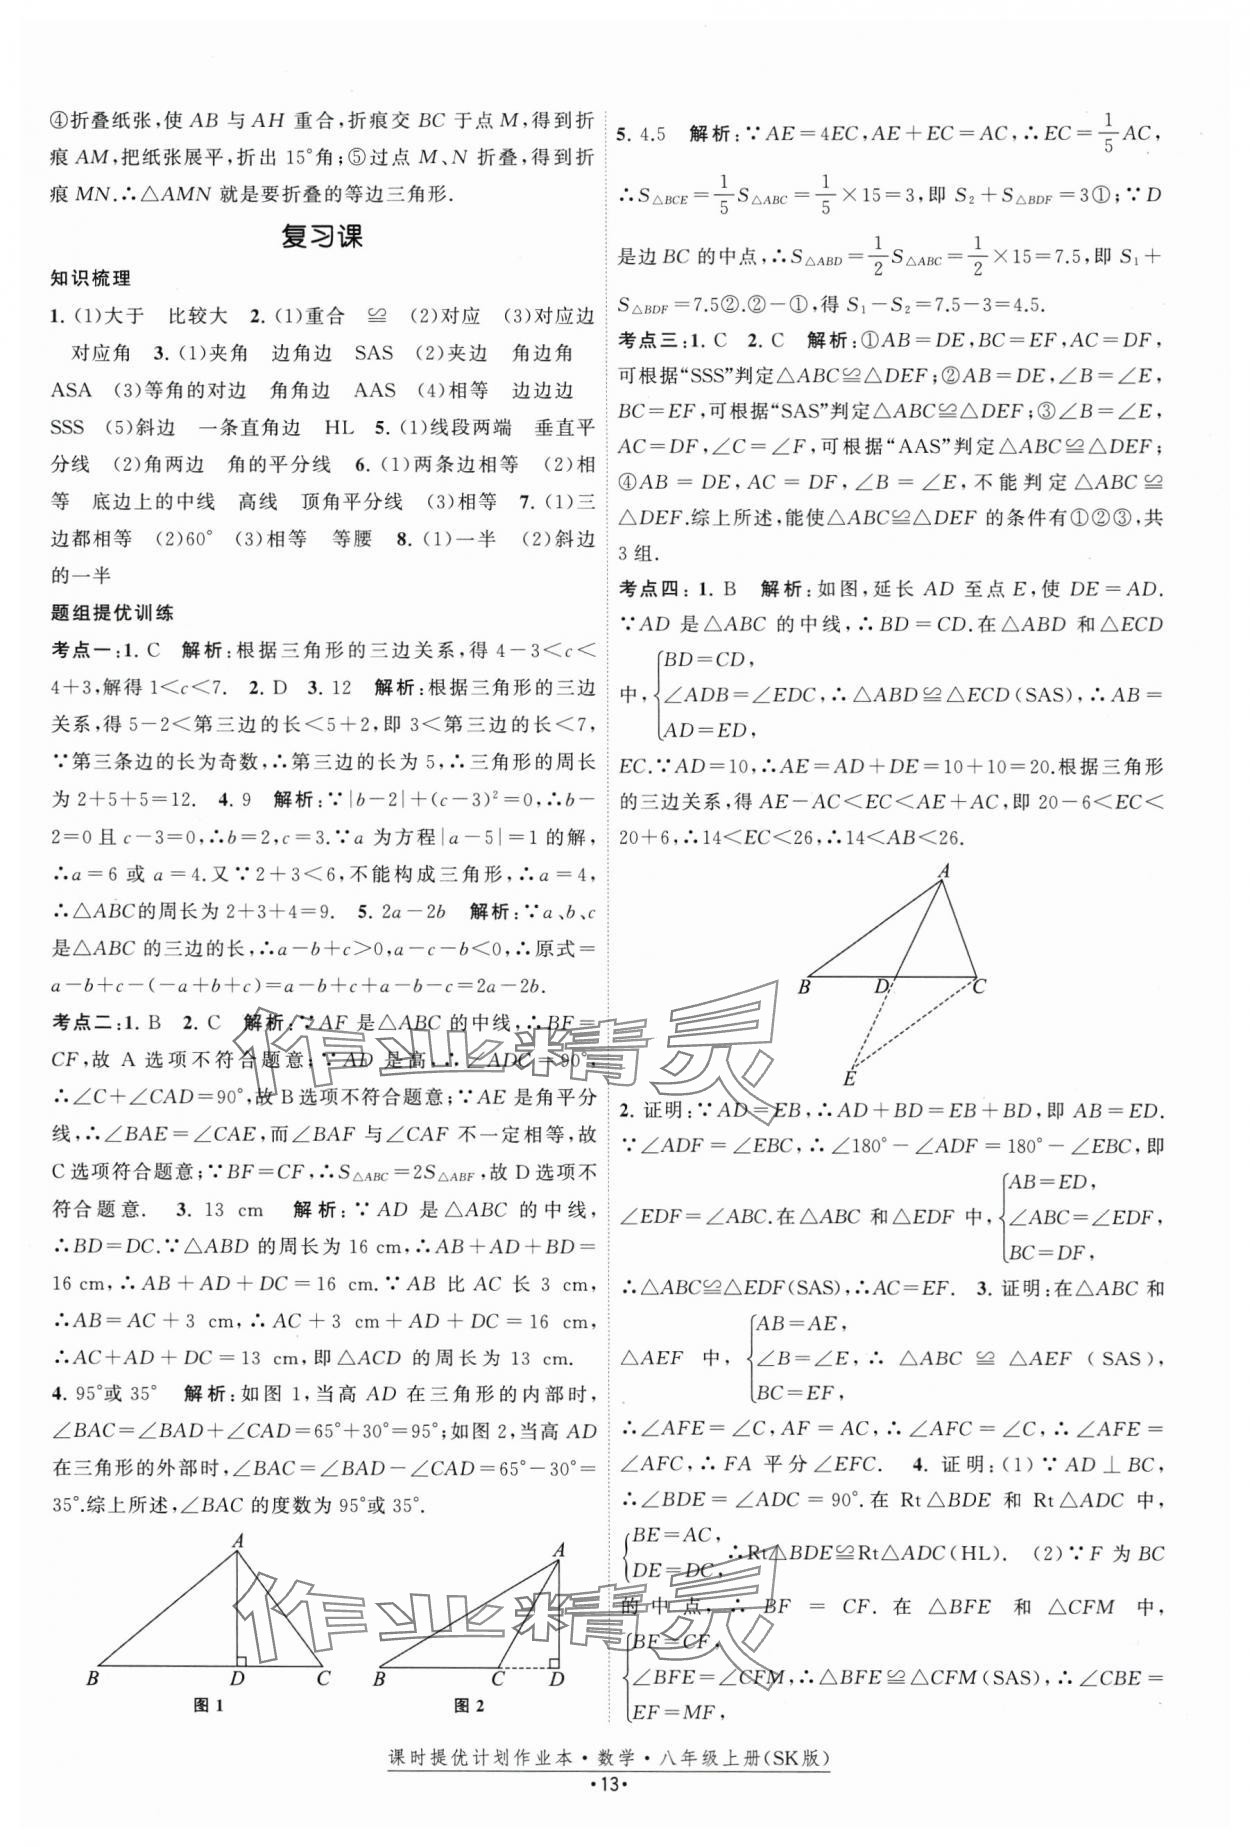 ④折叠纸张,使 AB 与 AH 重合,折痕交 BC 于点 M,得到折
痕 AM,把纸张展平,折出 15°角;⑤过点 M、N 折叠,得到折
痕 MN.∴△AMN 就是要折叠的等边三角形.
复习课
知识梳理
1. (1)大于 比较大 2. (1)重合 ≌ (2)对应 (3)对应边
对应角 3. (1)夹角 边角边 SAS (2)夹边 角边角
ASA (3)等角的对边 角角边 AAS (4)相等 边边边
SSS (5)斜边 一条直角边 HL 5. (1)线段两端 垂直平
分线 (2)角两边 角的平分线 6. (1)两条边相等 (2)相
等 底边上的中线 高线 顶角平分线 (3)相等 7. (1)三
边都相等 (2)60° (3)相等 等腰 8. (1)一半 (2)斜边
的一半
题组提优训练
考点一:1. C 解析:根据三角形的三边关系,得 4-3<c<
4+3,解得 1<c<7. 2. D 3. 12 解析:根据三角形的三边
关系,得 5-2<第三边的长<5+2,即 3<第三边的长<7,
∵第三条边的长为奇数,∴第三边的长为 5,∴三角形的周长
为 2+5+5=12. 4. 9 解析:∵|b-2|+(c-3)²=0,∴b-
2=0 且 c-3=0,∴b=2,c=3.∵a 为方程|a-5|=1 的解,
∴a=6 或 a=4.又∵2+3<6,不能构成三角形,∴a=4,
∴△ABC的周长为 2+3+4=9. 5. 2a-2b 解析:∵a、b、c
是△ABC 的三边的长,∴a-b+c>0,a-c-b<0,∴原式=
a-b+c-(-a+b+c)=a-b+c+a-b-c=2a-2b.
考点二:1. B 2. C 解析:∵AF 是△ABC 的中线,∴BF=
CF,故 A 选项不符合题意;∵AD 是高,∴∠ADC=90°,
∴∠C+∠CAD=90°,故 B 选项不符合题意;∵AE 是角平分
线,∴∠BAE=∠CAE,而∠BAF 与∠CAF 不一定相等,故
C 选项符合题意;∵BF=CF,∴S△ABC=2S△ABF,故 D 选项不
符合题意. 3. 13 cm 解析:∵AD 是△ABC 的中线,
∴BD=DC.∵△ABD 的周长为 16 cm,∴AB+AD+BD=
16 cm,∴AB+AD+DC=16 cm.∵AB 比 AC 长 3 cm,
∴AB=AC+3 cm,∴AC+3 cm+AD+DC=16 cm,
∴AC+AD+DC=13 cm,即△ACD 的周长为 13 cm.
4. 95°或 35° 解析:如图 1,当高 AD 在三角形的内部时,
∠BAC=∠BAD+∠CAD=65°+30°=95°;如图 2,当高 AD
在三角形的外部时,∠BAC=∠BAD-∠CAD=65°-30°=
35°.综上所述,∠BAC 的度数为 95°或 35°.
A
B D C
图 1
A
B C D
图 2
5. 4.5 解析:∵AE=4EC,AE+EC=AC,∴EC=1/5AC,
∴S△BCE=1/5S△ABC=1/5×15=3,即 S₂+S△BDF=3①;∵D
是边 BC 的中点,∴S△ABD=1/2S△ABC=1/2×15=7.5,即 S₁+
S△BDF=7.5②.②-①,得 S₁-S₂=7.5-3=4.5.
考点三:1. C 2. C 解析:①AB=DE,BC=EF,AC=DF,
可根据“SSS”判定△ABC≌△DEF;②AB=DE,∠B=∠E,
BC=EF,可根据“SAS”判定△ABC≌△DEF;③∠B=∠E,
AC=DF,∠C=∠F,可根据“AAS”判定△ABC≌△DEF;
④AB=DE,AC=DF,∠B=∠E,不能判定△ABC≌
△DEF.综上所述,能使△ABC≌△DEF 的条件有①②③,共
3 组.
考点四:1. B 解析:如图,延长 AD 至点 E,使 DE=AD.
∵AD 是△ABC 的中线,∴BD=CD.在△ABD 和△ECD
BD=CD,
中,∠ADB=∠EDC,∴△ABD≌△ECD(SAS),∴AB=
AD=ED,
EC.∵AD=10,∴AE=AD+DE=10+10=20.根据三角形
的三边关系,得 AE-AC<EC<AE+AC,即 20-6<EC<
20+6,∴14<EC<26,∴14<AB<26.
A
B D C
E
2. 证明:∵AD=EB,∴AD+BD=EB+BD,即 AB=ED.
∵∠ADF=∠EBC,∴∠180°-∠ADF=180°-∠EBC,即
AB=ED,
∠EDF=∠ABC.在△ABC 和△EDF 中,∠ABC=∠EDF,
BC=DF,
∴△ABC≌△EDF(SAS),∴AC=EF. 3. 证明:在△ABC 和
AB=AE,
△AEF 中,∠B=∠E,∴△ABC≌△AEF(SAS),
BC=EF,
∴∠AFE=∠C,AF=AC,∴∠AFC=∠C,∴∠AFE=
∠AFC,∴FA 平分∠EFC. 4. 证明:(1)∵AD⊥BC,
∴∠BDE=∠ADC=90°.在 Rt△BDE 和 Rt△ADC 中,
BE=AC,
∴Rt△BDE≌Rt△ADC(HL). (2)∵F 为 BC
DE=DC,
的中点,∴BF=CF.在△BFE 和△CFM 中,
BF=CF,
∠BFE=∠CFM,∴△BFE≌△CFM(SAS),∴∠CBE=
EF=MF,
作业精灵
作业精灵
课时提优计划作业本·数学·八年级上册(SK版)
·13·